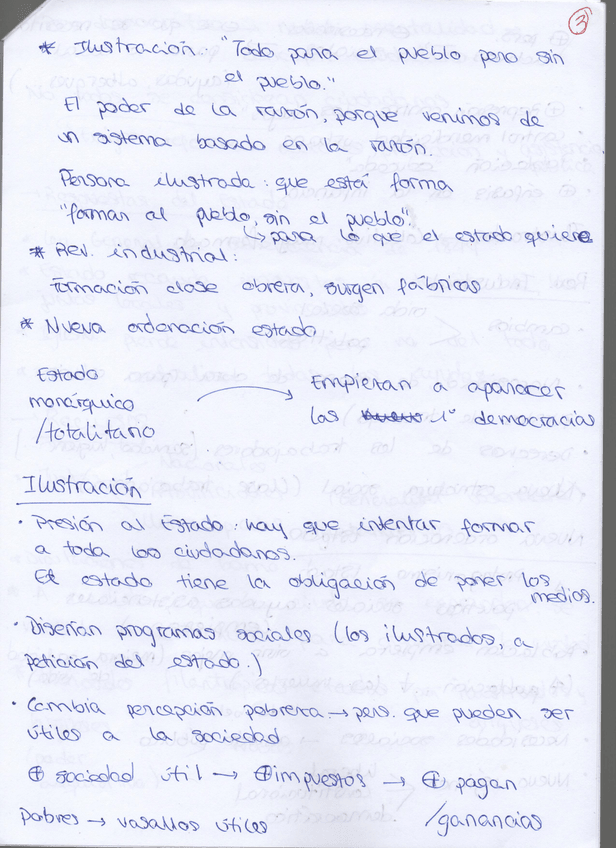 3
* Ilustración: "Todo para el pueblo pero sin
el pueblo."
El poder de la razón, porque venimos de
un sistema basado en la razón.
Persona ilustrada: que está forma
"forman al pueblo, sin el pueblo"
↳ para lo que el estado quiere
* Rev. industrial:
Formación clase obrera, surgen fábricas
* Nueva ordenación estado
Estado
monárquico
/totalitario
→ Empiezan a aparecer
las 1ª democracias
Ilustración
· Presión al Estado: hay que intentar formar
a toda los ciudadanos.
El estado tiene la obligación de poner los
medios.
· Diseñan programas sociales (los ilustrados, a
petición del estado.)
· Cambia percepción pobreza → pers. que pueden ser
útiles a la sociedad
⊕ sociedad útil → ⊕ impuestos → ⊕ pagan
/ganancias
pobres → vasallos útiles